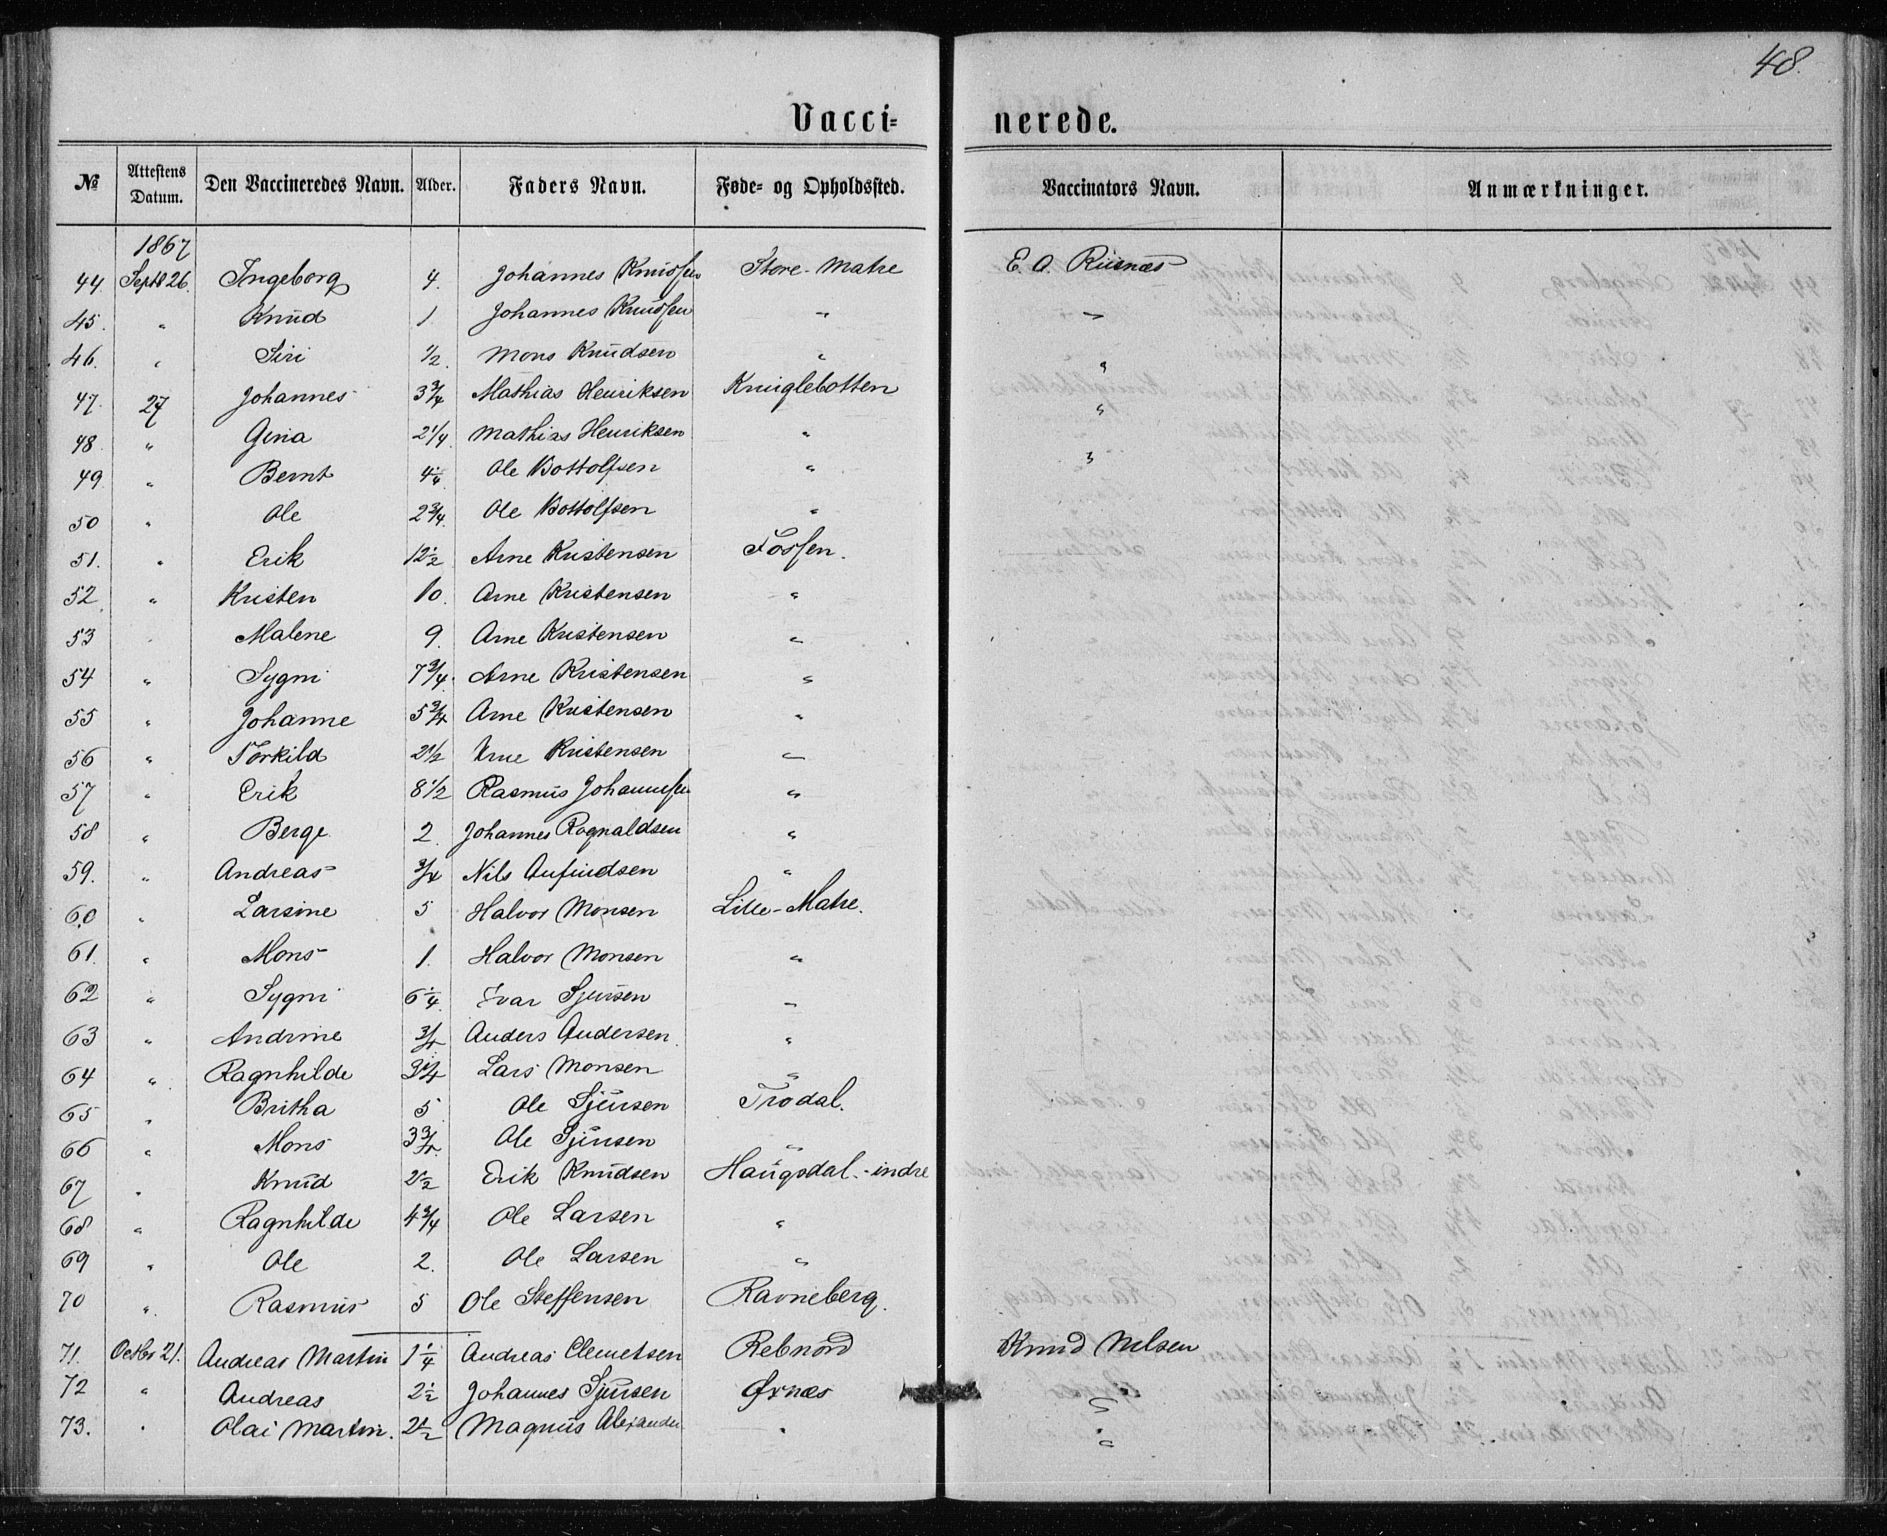 48.
Vacci= nerede.
№ Attestens Datum. Den Vaccineredes Navn. Alder. Faders Navn. Føde= og Opholdssted. Vaccinators Navn. Anmærkninger.
1867
44. Septb 26. Ingeborg 4. Johannes Knudsen Store-Matre E. O. Riisnæs
45. " Knud 1 Johannes Knudsen " "
46. " Siri 1/2. Mons Knudsen " "
47. 27 Johannes 3 3/4 Mathias Henriksen Knuglebotten "
48. " Gina 2 1/4. Mathias Henriksen "
49. " Bernt 4 1/4. Ole Bottolfsen " "
50 " Ole 2 3/4. Ole Bottolfsen "
51. " Erik 12 1/2 Arne Kristensen Fossen.
52. " Kristen 10. Arne Kristensen "
53 Malene 9. Arne Kristensen "
54 " Sygni 7 3/4. Arne Kristensen "
55 " Johanne 5 3/4 Arne Kristensen "
56 " Torkild 2 1/2 Arne Kristensen "
57 " Erik 8 1/2 Rasmus Johannesen "
58 " Berge 2. Johannes Rognaldsen "
59. " Andreas 3/4 Nils Anfindsen "
60 " Larsine 5 Halvor Monsen Lille-Matre.
61. " Mons 1. Halvor Monsen "
62 " Sygni 6 1/4. Ivar Sjursen "
63 " Andrine 3/4 Anders Andersen. "
64 " Ragnhilde 3 1/4 Lars Monsen "
65 " Britha 5 Ole Sjursen Trodal.
66 " Mons 3 3/4. Ole Sjursen "
67 " Knud 2 1/2 Erik Knudsen Haugsdal-indre
68 " Ragnhilde 4 3/4 Ole Larsen "
69 " Ole 2. Ole Larsen "
70 " Rasmus 5 Ole Steffensen Ravneberg.
71. Octbr 21. Andreas Martin 1 1/4 Andreas Clemetsen Rebnord Knud Nelsen
72 " Andreas 2 1/2 Johannes Sjursen Øxnæs "
73. " Olai Martin. 2 1/2 Magnus Alexander " "